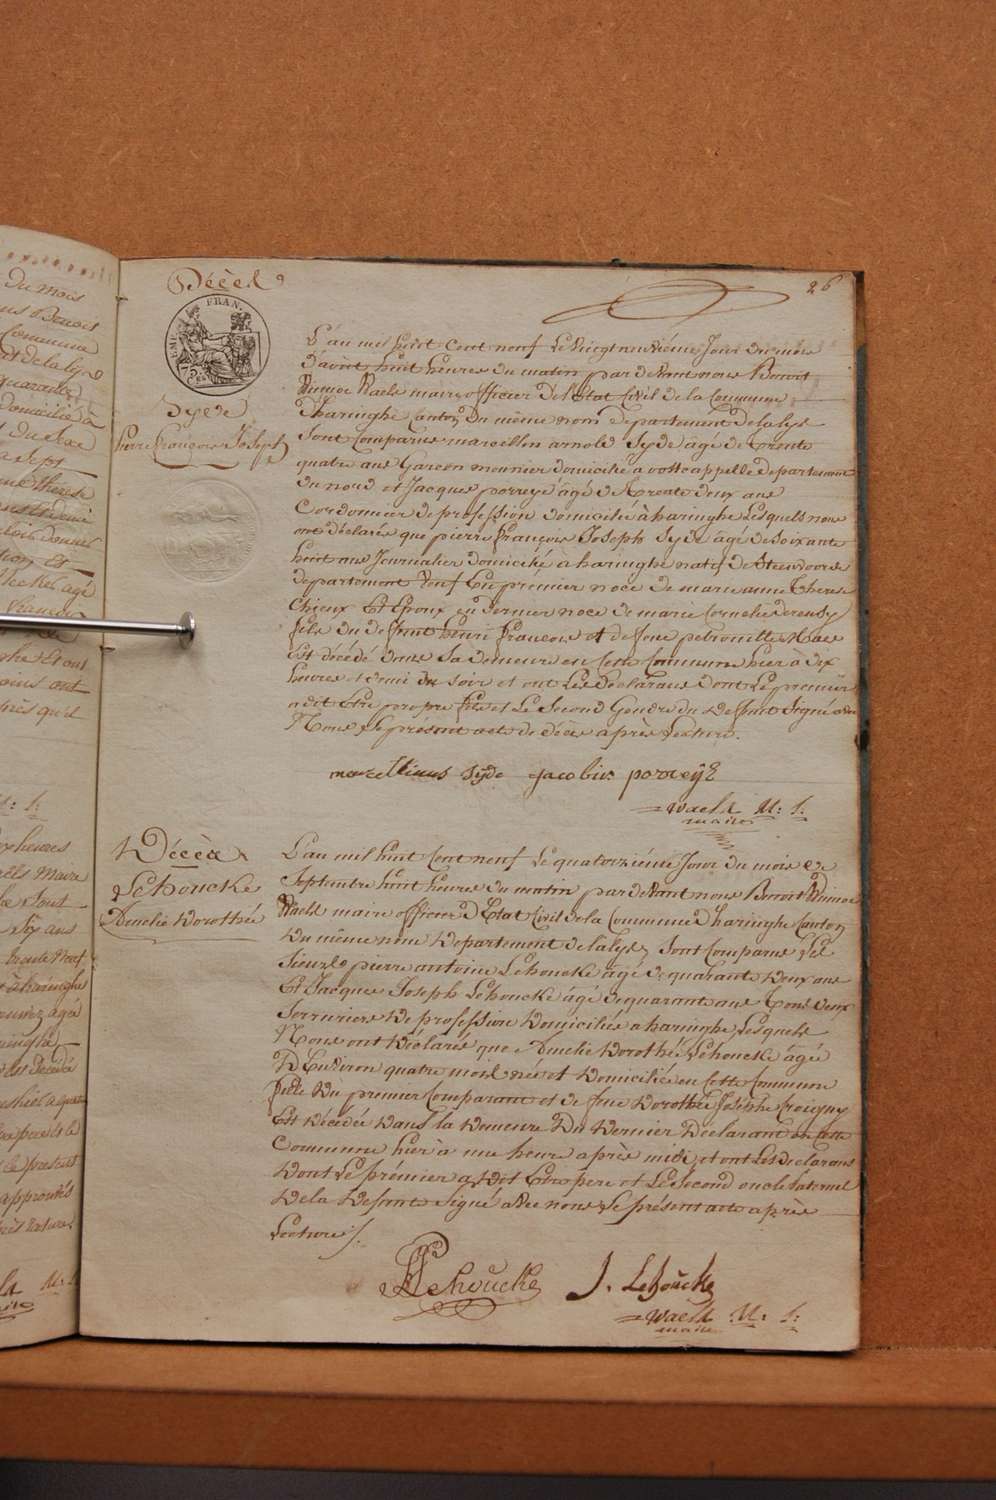 26
Décès
EMP. FRAN.
75 Ces
Syde
Pierre François Joseph
L'an mil huit Cent neuf Le vingt neuvième Jour du mois
D'août huit heures du matin par devant nous Benoit
Winnoc Waels maire officier de l'état Civil de la Commune
D'haringhe Canton Du même nom département de la lys
Sont Comparus marcellin arnold Syde âgé de trente
quatre ans Garçon meunier domicilié a vottcappelle departement
du nord et Jacques porreye âgé de trente deux ans
Cordonnier de profession domicilié à haringhe Lesquels nous
ont déclarés que pierre François Joseph Syde agé de soixante
huit ans Journalier domicilié à haringhe natif de Steenvoorde
departement veuf En premier noce de marie anne Therese
Et Epoux en dernier noce de marie Cornelie
fils du defunt henri François et de feue petronille
Est décédé dans Sa demeure en Cette Commune hier à dix
heures et demi du soir et ont Les Déclarans dont Le premier
a dit Etre propre fils et Le Second Gendre du defunt Signé avec
Nous Le présent acte de décès après Lecture.
marcellinus Syde jacobus porreye
waels M: S:
maire
Décès
Lehoucke
Amelie Dorothée
L'an mil huit Cent neuf Le quatorzième Jour du mois de
Septembre huit heures du matin par devant nous Benoit Winnoc
Waels maire officier d'Etat Civil de la Commune d'haringhe Canton
du même nom Departement de la lys Sont Comparus Les
Sieurs pierre antoine Lehoucke âgé de quarante deux ans
Et Jacques Joseph Lehoucke âgé de quarante ans tous deux
Serruriers de profession domiciliés a haringhe Lesquels
Nous ont déclarés que Amelie Dorothée Lehoucke âgée
D'Environ quatre mois née et domiciliée en Cette Commune
fille du premier Comparant et de feue Dorothée Josephe
Est décédée dans la demeure du dernier Déclarant en Cette
Commune hier à une heure après midi et ont Les Declarans
dont Le premier a dit Etre père et Le Second oncle paternel
de la defunte Signé avec nous Le présent acte après
Lecture.
Lehoucke J. Lehoucke
waels M: S:
maire